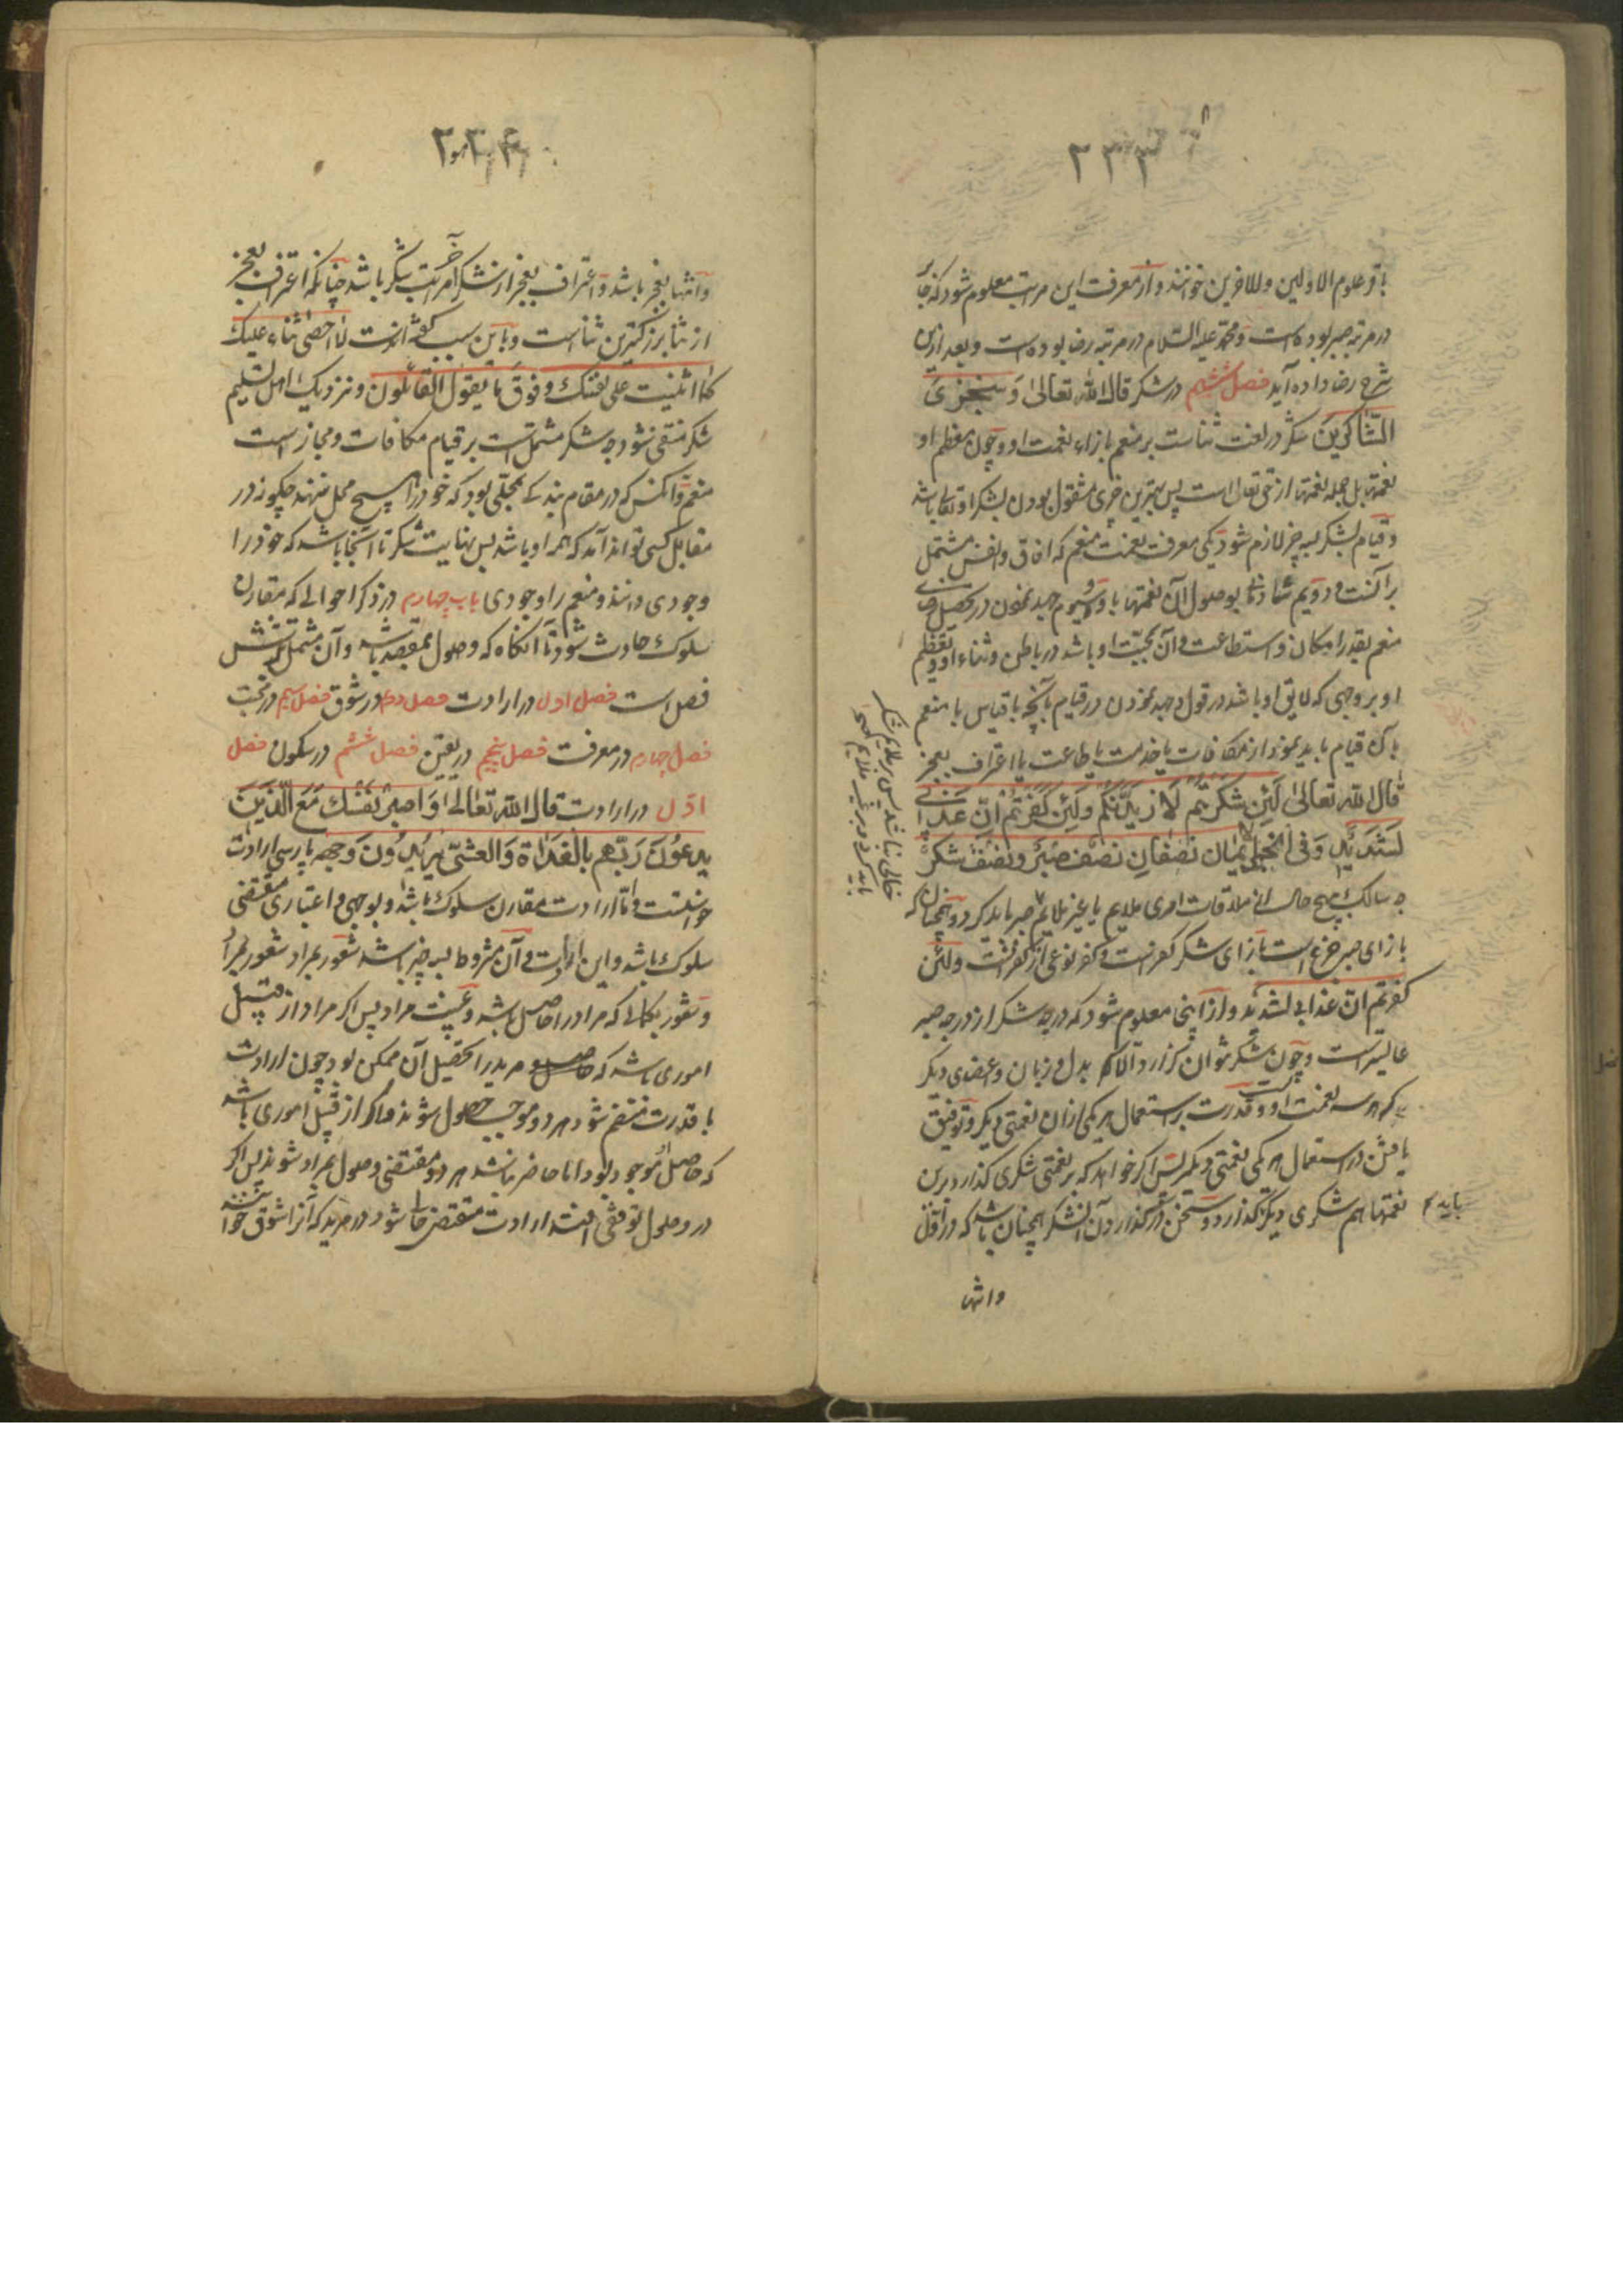 ۲۳۳
باقر علوم الاولین وللاخرین خوانند و از معرفت این مراتب معلوم شود که جابر
در مرتبه صبر بوده است و محمد علیه السلام در مرتبه رضا بوده است و بعد ازین
شرح رضا داده آید فصل ششم در شکر قال الله تعالی وَ سَنَجزِی
الشّاکرینَ شکر در لغت ثناست بر منعم بازاء نعمت او و چون معظم
نعمتها بل جمله نعمتها از حق تعالی است پس بهترین چیزی مشغول بودن بشکر او تعالی باشد
و قیام بشکر بسه چیز لازم شود یکی معرفت نعمت منعم که افاق و انفس مشتمل
بر آنست و دویم شادمانی بوصول آن نعمتها باو و سیوم جهد نمودن در تحصیل رضای
منعم بقدر امکان و استطاعت و آن بمحبّت او باشد در باطن و ثناء او و تعظیم
او بر وجهی که لایق او باشد در قول و جهد نمودن در قیام بآنچه باقیاس با منعم
بآن قیام باید نمود از مکافات یا خدمت یا طاعت یا اعتراف بعجز
قال الله تعالی لَئِن شَکَرتُم لَازیدَنَّکُم وَلَئِن کَفَرتُم اِنَّ عَذابی
لَشَدیدٌ وَ فی الخبر الایمان نصفان نصف صبر و نصف شکر
چه سالک بهیچ حال از ملاقات امری ملایم یا غیر ملایم صبر باید کرد و همچنان که
بازای صبر جزع است بازای شکر کفرانست و کفر نوعی از کفرانست ولئن
کفرتم انّ عذابی لشدید و از اینجا معلوم شود که درجه شکر از درجه صبر
عالیتر است و چون شکر نتوان گزارد الا بدل و زبان و اعضای دیگر
که هر سه نعمت اوست و قدرت بر استعمال هر یکی از ان نعمتی دیگر و توفیق
یافتن در استعمال هر یکی نعمتی دیگر پس اگر خواهد که بر نعمتی شکری گذارد برین
نعمتها هم شکری دیگر گذارد و سخن در گذاردن آن شکر همچنان باشد که در اول
باید
وانتها
خالی نباشد پس بر ملایم شکر
باید کرد و بر غیر ملایم صح
۲۳۴
وانتها بعجز باشد و اعتراف بعجز از شکر آخر مراتب شکر باشد چنانکه اعتراف بعجز
از ثنا بزرگترین ثناست و باین سبب گفته است لا احصی ثناء علیک
کما اثنیت علی نفسک و فوق ما یقول القائلون و نزدیک اهل تسلیم
شکر منتفی شود چه شکر مشتمل است بر قیام مکافات و مجازات
منعم و آنکس که در مقام بندگی بمحلّی بود که خود را هیچ محل ننهد چگونه در
مقابل کسی تواند آمد که همه او باشد پس نهایت شکر تا آنجا باشد که خود را
وجودی داند و منعم را وجودی باب چهارم در ذکر احوالی که مقارن
سلوک حادث شود تا آنگاه که وصول بمقصد باشد و آن مشتمل بر شش
فصل است فصل اول در ارادت فصل دوم در شوق فصل سیم در محبت
فصل چهارم در معرفت فصل پنجم در یقین فصل ششم در سکون فصل
اوّل در ارادت قال الله تعالی وَ اصبِر نَفسَکَ مَعَ الَّذینَ
یَدعُونَ رَبَّهم بِالغَداةِ وَالعَشِیِّ یُریدُونَ وَجهَه بپارسی ارادت
خواستنست و اما ارادت مقارن سلوک باشد و بوجهی و اعتباری مقتضی
سلوک باشد و این ارادت و آن مشروط بسه چیز باشد شعور بمراد
و شعور بکمالی که مراد را حاصل باشد و غیبت مراد پس اگر مراد از قبیل
اموری باشد که مرید را تحصیل آن ممکن بود چون ارادت
با قدرت منضم شود هر دو موجب حصول شوند و اگر از قبیل اموری باشد
که حاصل و موجود بود اما حاضر نباشد هر دو مقتضی وصول بمراد شوند پس اگر
در وصول توقفی افتد ارادت مقتضی حالتی شود در مرید که آنرا شوق خوانند